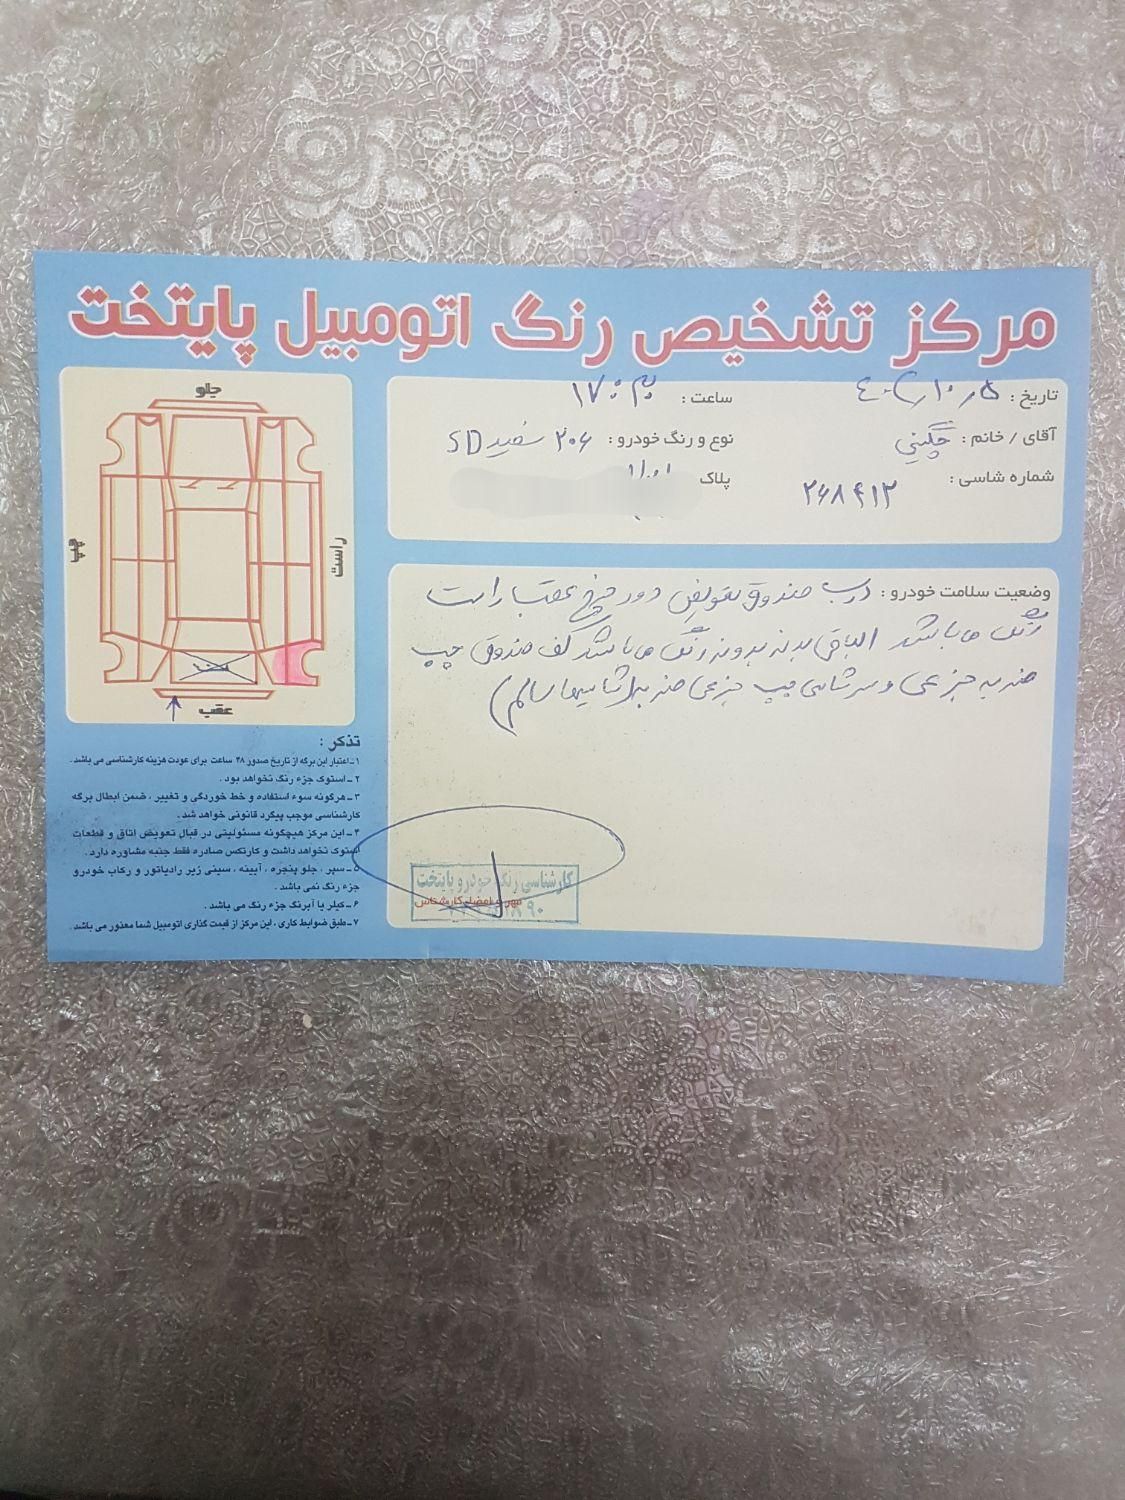 مرکز تشخیص رنگ اتومبیل پایتخت
تاریخ :
ساعت : ۱۷:۳۰
آقای / خانم : چگینی
نوع و رنگ خودرو : ۲۰۶ سفید SD
شماره شاسی : ۲۶۸۴۱۳
پلاک
وضعیت سلامت خودرو : درب صندوق تعویض دور چرخ عقب راست
رنگ می باشد الباقی بدنه بدون رنگ می باشد کف صندوق چپ
ضربه جزئی و سرشاسی چپ جزئی ضربه (شاسیها سالم)
جلو
چپ
راست
عقب
تذکر :
۱ـ اعتبار این برگه از تاریخ صدور ۴۸ ساعت برای عودت هزینه کارشناسی می باشد .
۲ ـ استوک جزء رنگ نخواهد بود .
۳ ـ هرگونه سوء استفاده و خط خوردگی و تغییر ، ضمن ابطال برگه
کارشناسی موجب پیگرد قانونی خواهد شد .
۴ ـ این مرکز هیچگونه مسئولیتی در قبال تعویض اتاق و قطعات
استوک نخواهد داشت و کارتکس صادره فقط جنبه مشاوره دارد .
۵ ـ سپر ، جلو پنجره ، آیینه ، سینی زیر رادیاتور و رکاب خودرو
جزء رنگ نمی باشد .
۶ ـ کیلر یا آبرنگ جزء رنگ می باشد .
۷ ـ طبق ضوابط کاری ، این مرکز از قیمت گذاری اتومبیل شما معذور می باشد .
کارشناسی رنگ خودرو پایتخت
مهر و امضاء کارشناس